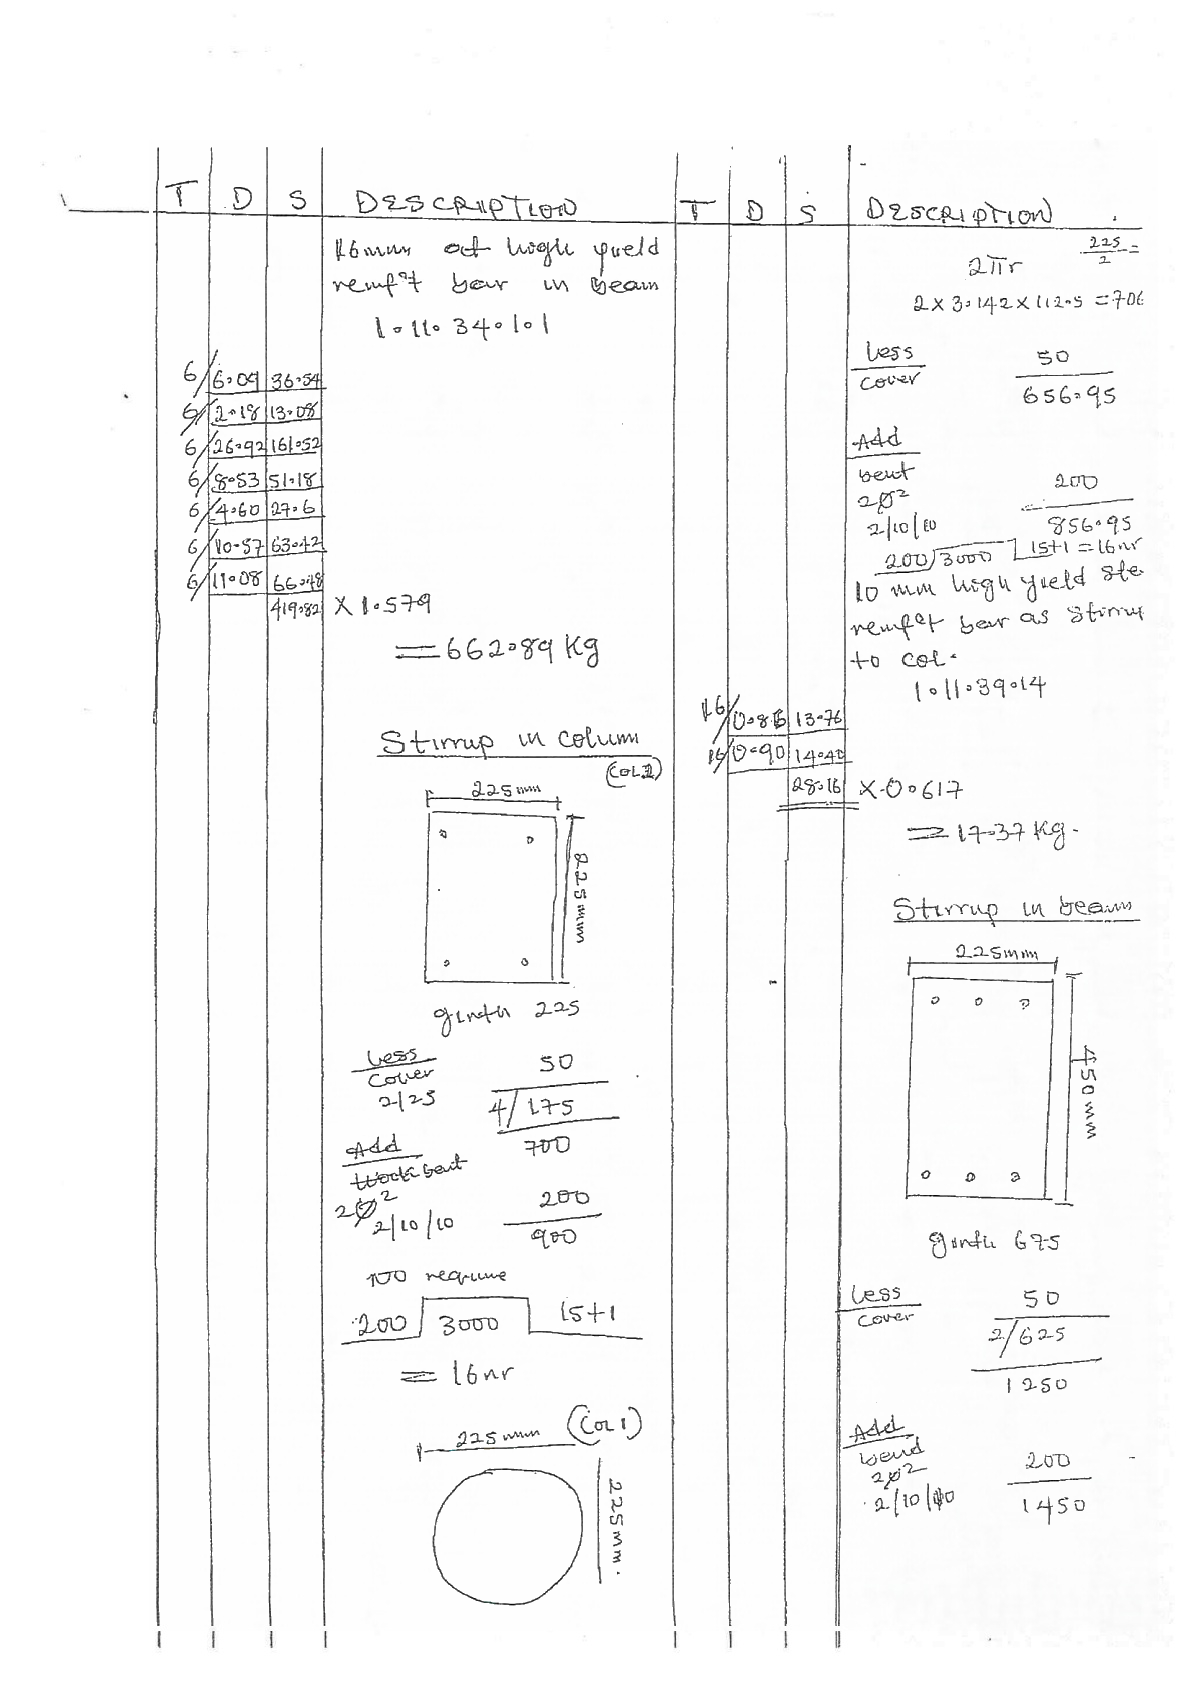 T D S DESCRIPTION
16mm
high yield
bar in beam
1.11.34.1.1
6/ 6.09 36.54
6/ 2.18 13.08
6/ 26.92 161.52
6/ 8.53 51.18
6/ 4.60 27.6
6/ 10.57 63.42
6/ 11.08 66.48
419.82 X 1.579
= 662.89 Kg
Stirrup in column
(COL2)
225mm
225mm
girth 225
Less 50
Cover
2/25 4/175
Add 700
bent
2ø² 200
2/10/10
900
require
200 3000 15+1
= 16nr
(COL 1)
225mm
225mm.
T D S DESCRIPTION
2πr
225 =
2
2 x 3.142 x 112.5 = 706
Less 50
Cover
656.95
Add
bent
2ø² 200
2/10/10 856.95
200 3000 15+1 = 16nr
10 mm high yield
bar as
to COL.
1.11.39.14
16/ 0.86 13.76
16/ 0.90 14.40
28.16 X 0.617
= 17.37 Kg.
Stirrup in beam
225mm
450mm
girth 675
Less 50
Cover
2/625
1250
Add
bend 200
2ø²
2/10/10 1450